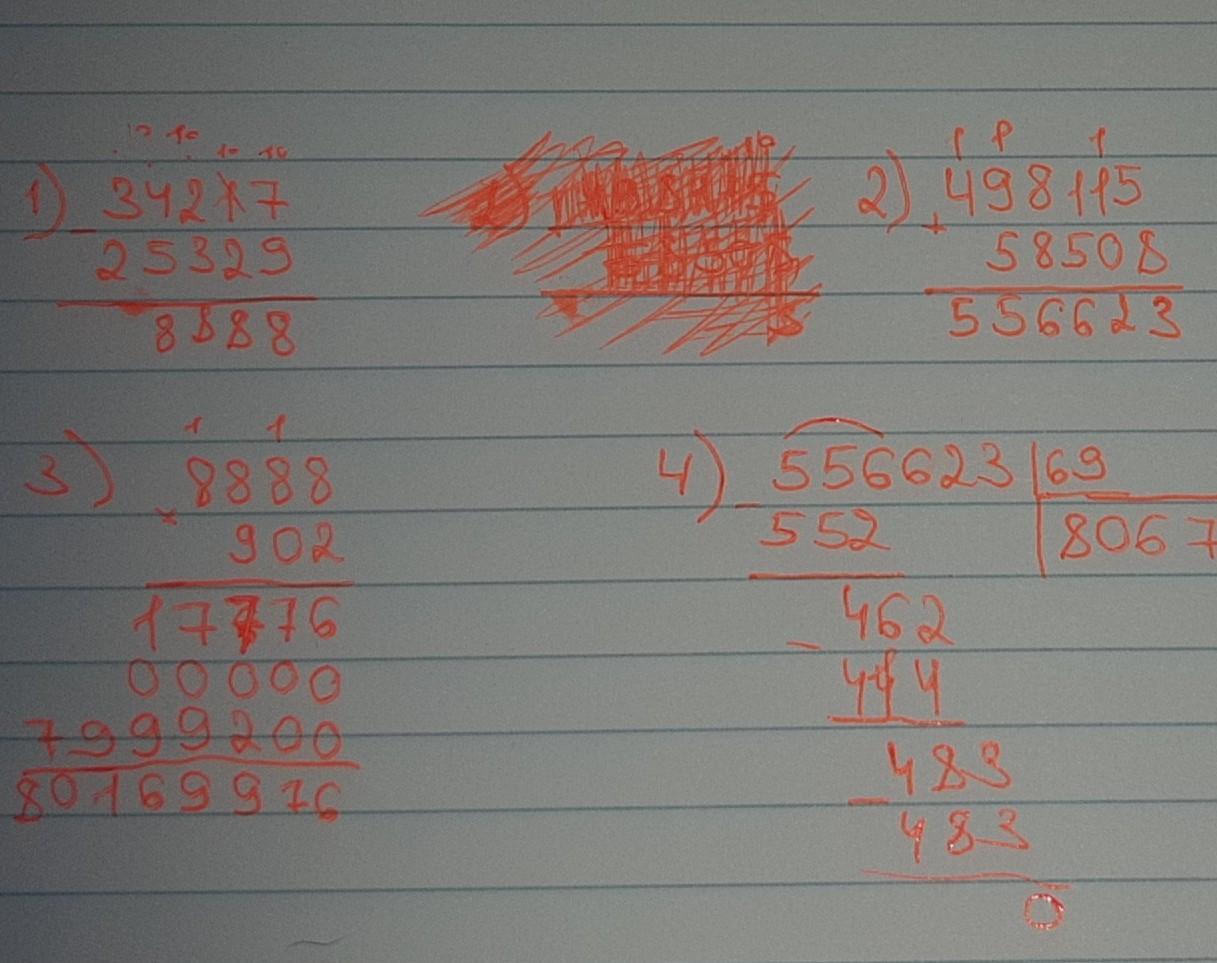 10 10
10 10
1) 34217
- 25329
8888
1 1 1
2) 498115
+ 58508
556623
1 1
3) 8888
× 902
17776
00000
7999200
80169976
4) - 556623 | 69
552 | 8067
- 462
414
- 483
483
0